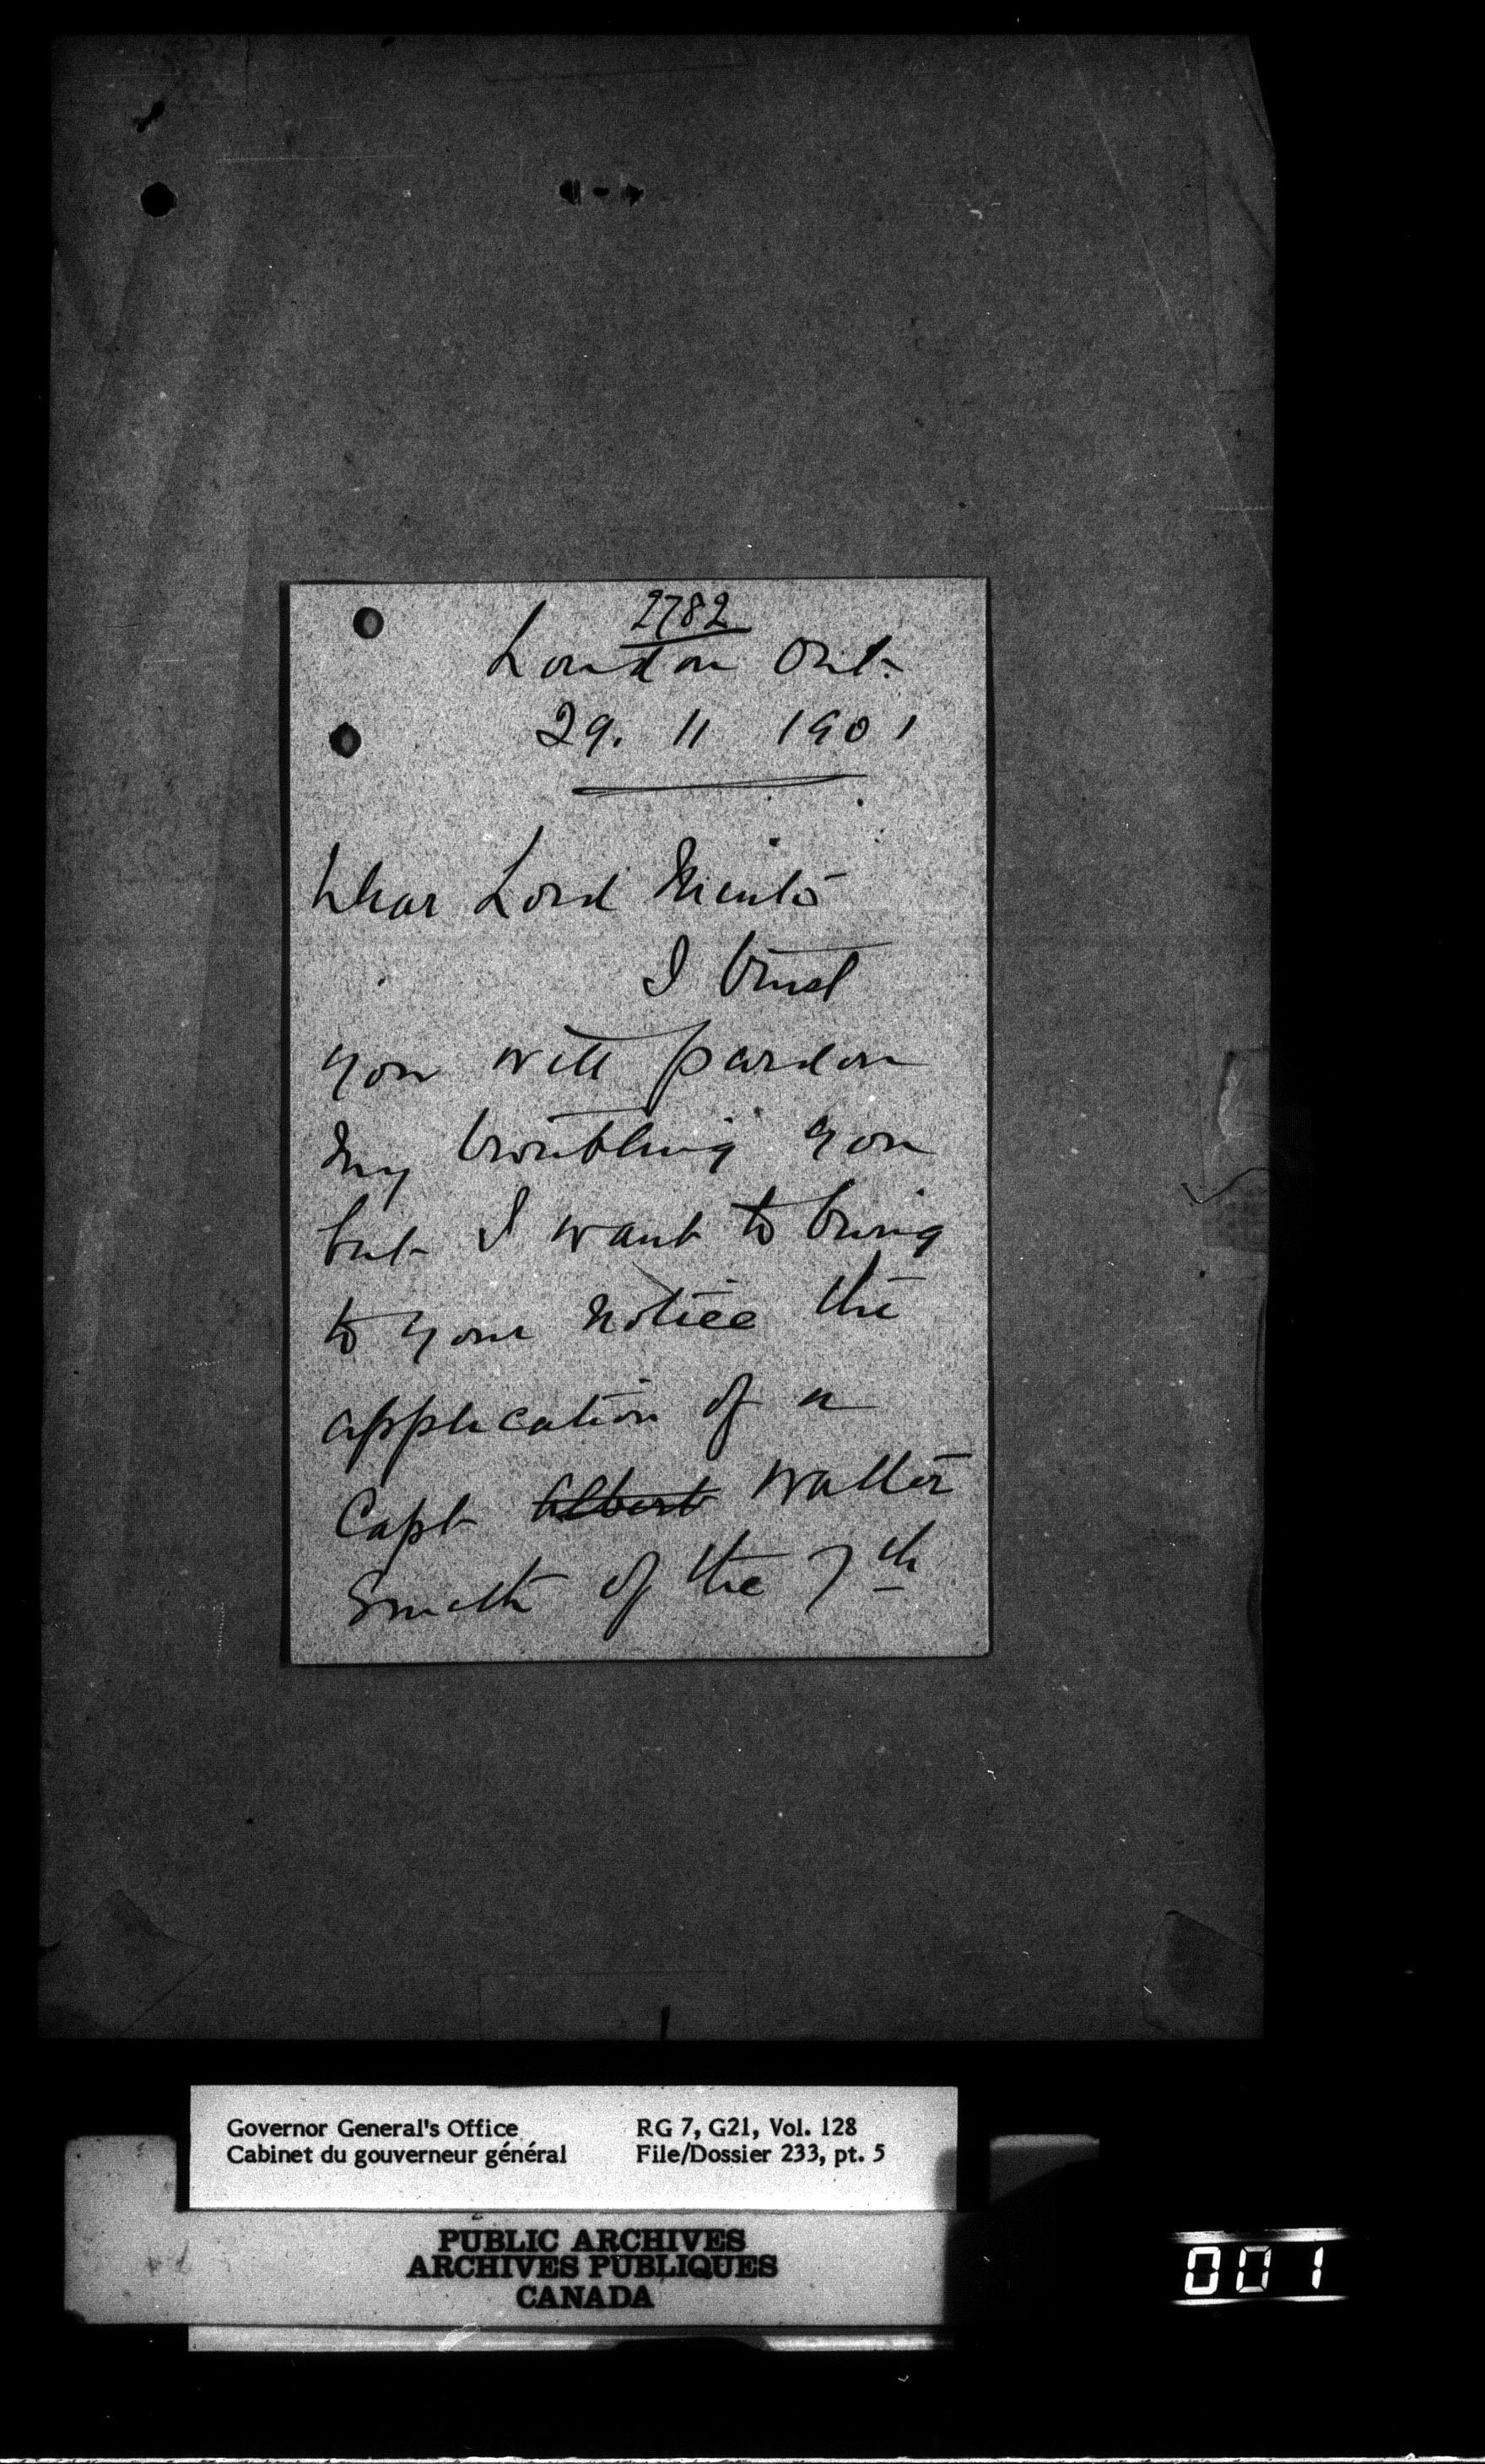 2782
London Ont.
29. 11 1901
Dear Lord Minto
I trust
you will pardon
my troubling you
but I want to bring
to your notice the
application of a
Capt Albert Walter
Smith of the 7th
Governor General's Office
Cabinet du gouverneur général
RG 7, G21, Vol. 128
File/Dossier 233, pt. 5
PUBLIC ARCHIVES
ARCHIVES PUBLIQUES
CANADA
001